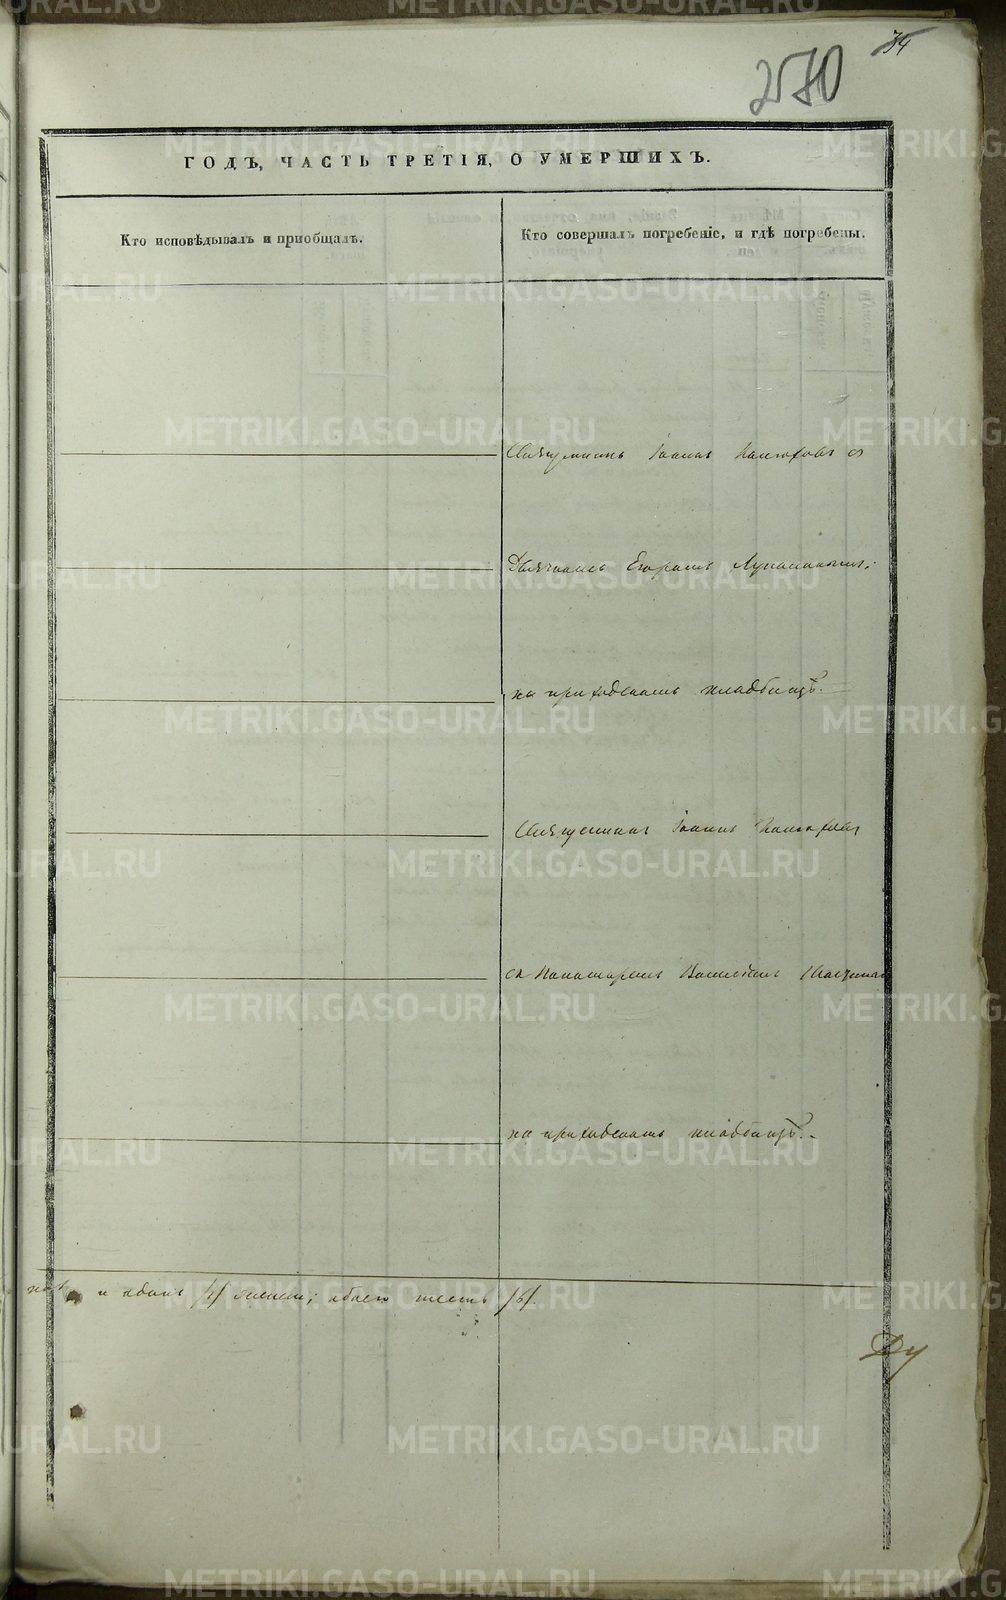 34
270
ГОДЪ, ЧАСТЬ ТРЕТІЯ, О УМЕРШИХЪ.
Кто исповѣдывалъ и пріобщалъ.
Кто совершалъ погребеніе, и гдѣ погребены.
Священникъ Іоаннъ съ
Дьячкомъ Егоромъ
на приходскомъ кладбищѣ.
Священникъ Іоаннъ
съ Пономаремъ Василіемъ
на приходскомъ кладбищѣ.
и одинъ /1/ обоего шесть /6/.
METRIKI.GASO-URAL.RU